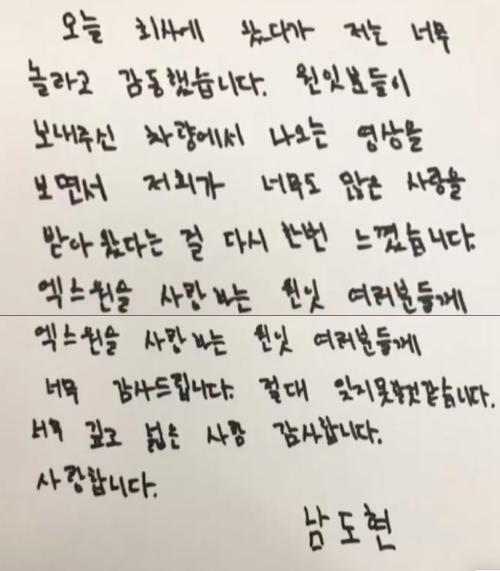 오늘 회사에 왔다가 저는 너무
놀라고 감동했습니다. 원잇분들이
보내주신 차량에서 나오는 영상을
보면서 저희가 너무도 많은 사랑을
받아 왔다는 걸 다시 한번 느꼈습니다.
엑스원을 사랑하는 원잇 여러분들께
엑스원을 사랑하는 원잇 여러분들께
너무 감사드립니다. 절대 잊지못할것같습니다.
너무 깊고 넓은 사랑 감사합니다.
사랑합니다.
남도현